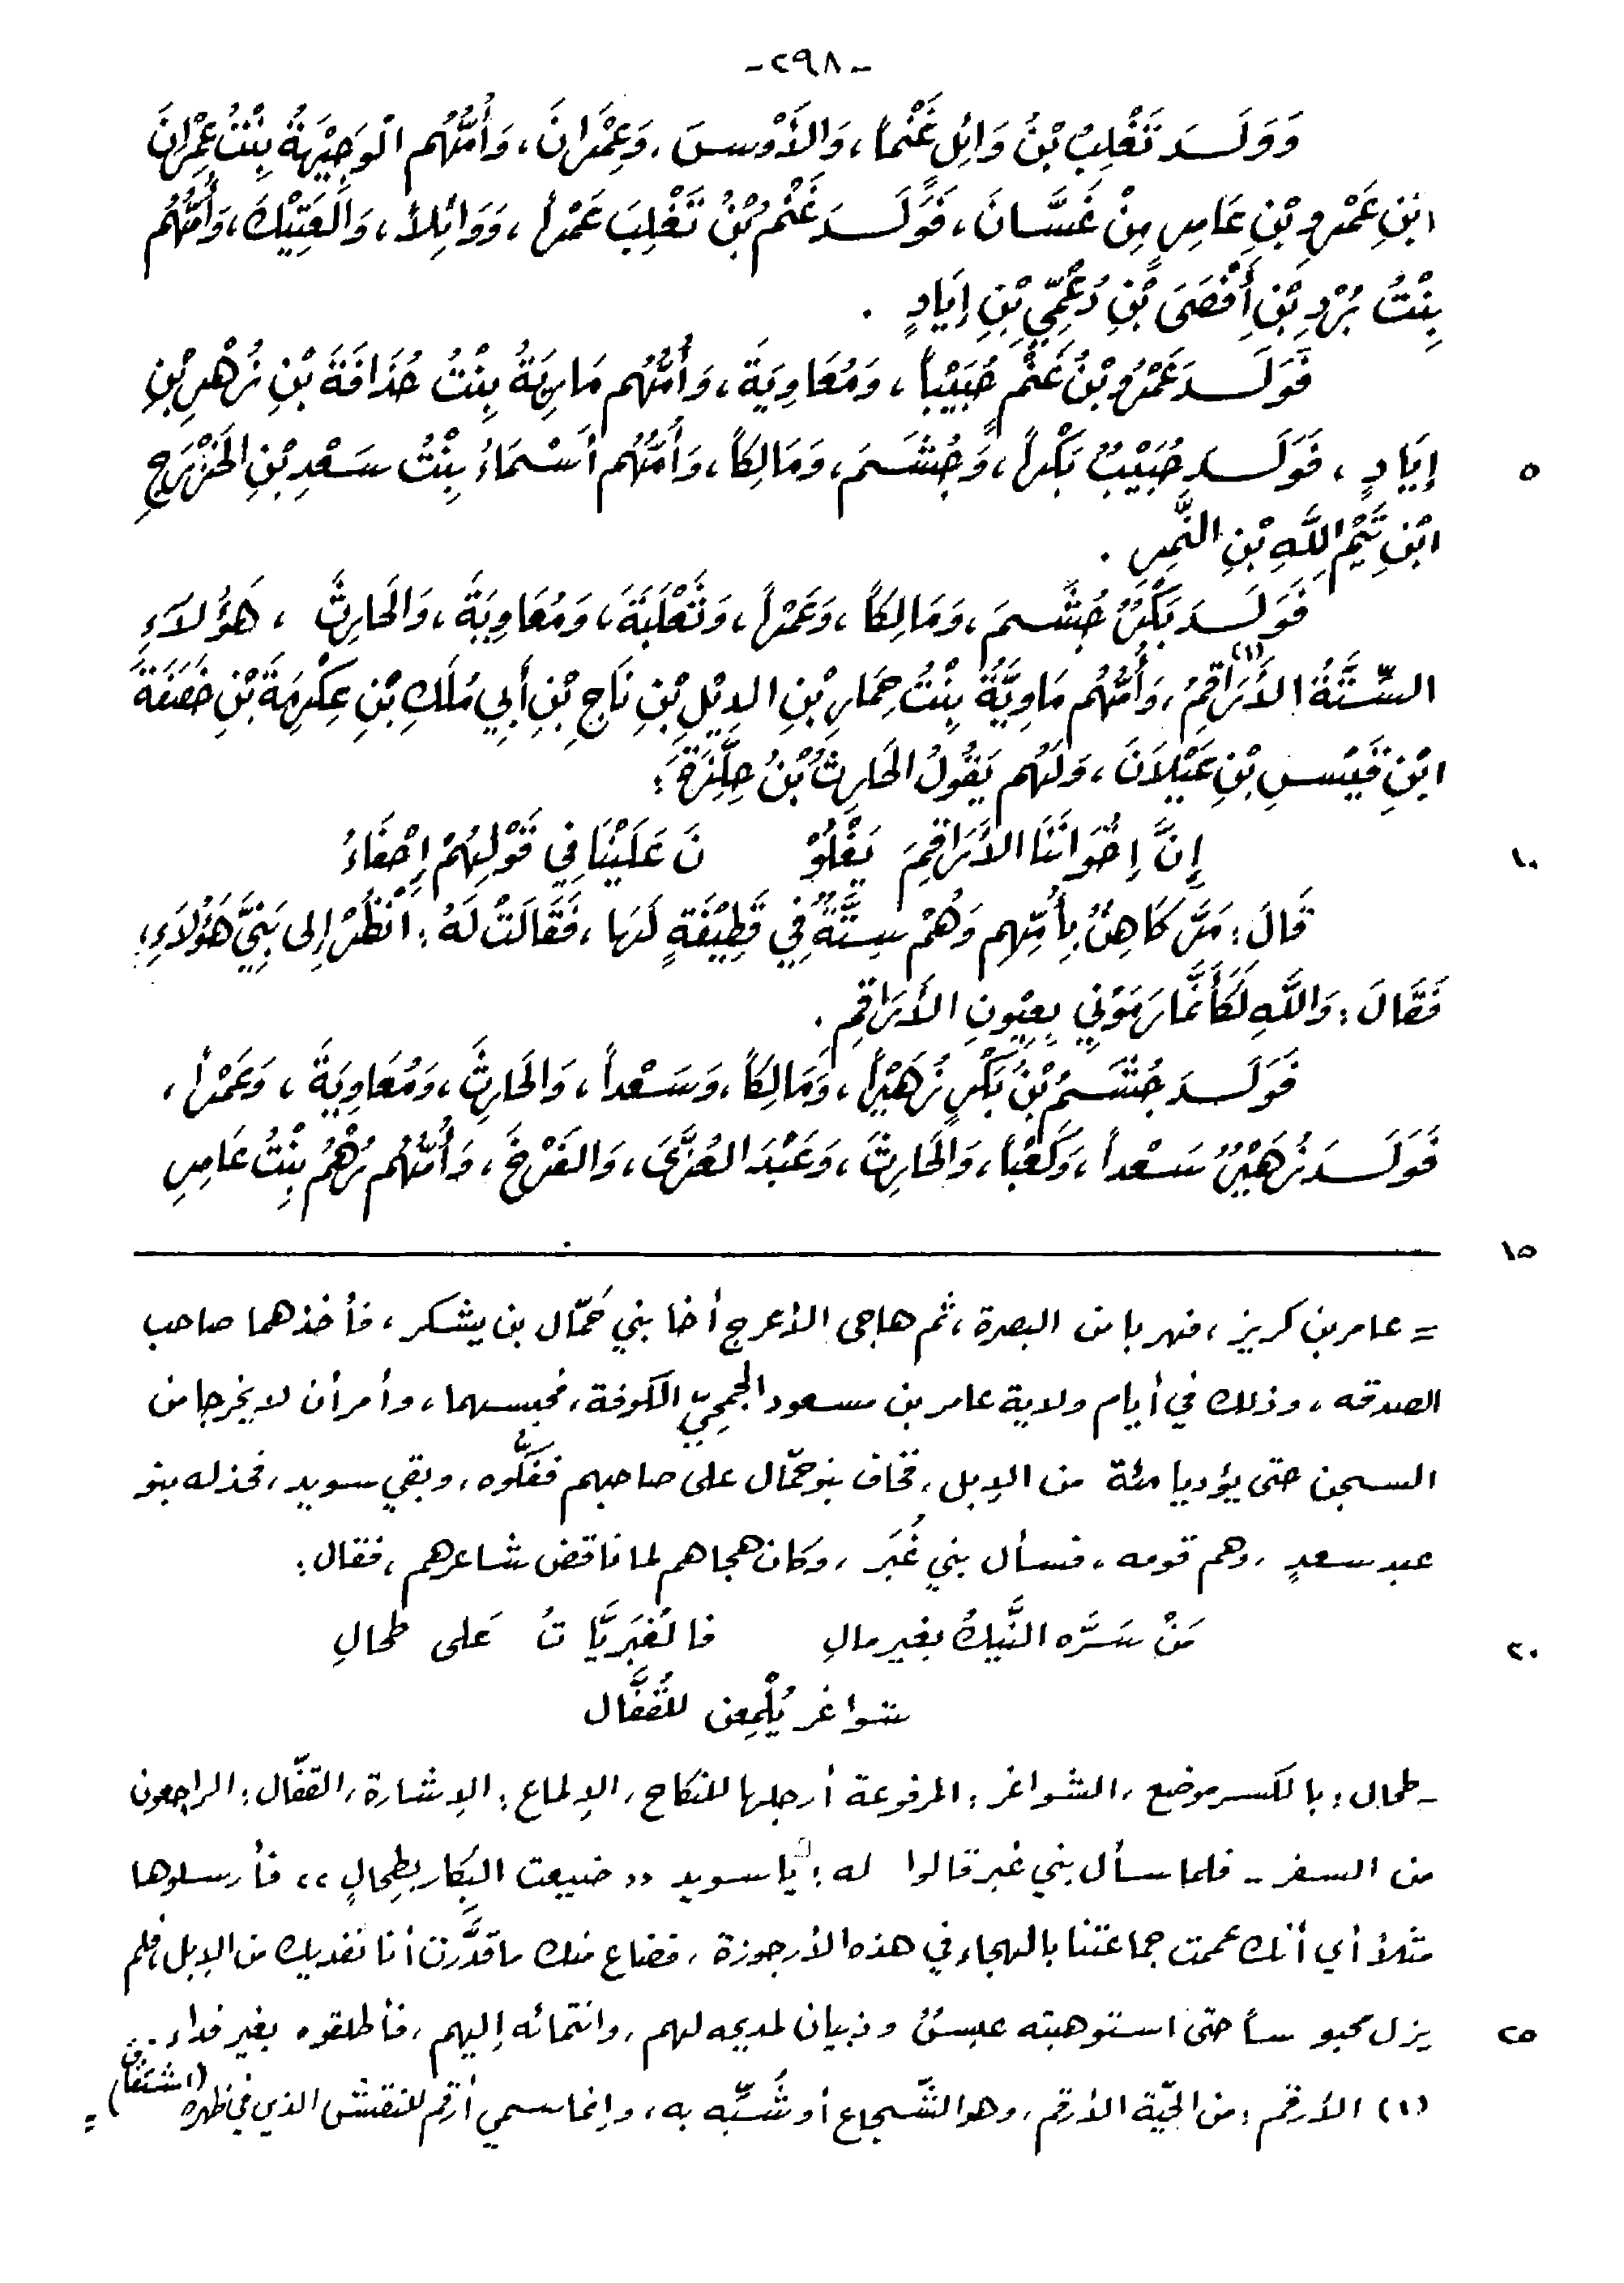 -٢٩٨-
وَوَلَـدَ تَغْلِبُ بْنُ وَائِلٍ غَنْماً، وَالأَوْسَ، وَعِمْرَانَ، وَأُمُّهُم الوَجِيْهَةُ بِنْتُ عِمْرَانَ
ابْنِ عَمْرِو بْنِ عَامِرٍ مِنْ غَسَّانَ، فَوَلَـدَ غَنْمُ بْنُ تَغْلِبَ عَمْراً، وَوَائِلاً، وَالعَتِيْكَ، وَأُمُّهُم
بِنْتُ بُرْدِ بْنِ أَفْصَى بْنِ دُعْمِيِّ بْنِ إِيَادٍ .
فَوَلَـدَ عَمْرُو بْنُ غَنْمٍ حُبَيْباً، وَمُعَاوِيَةَ، وَأُمُّهُم مَارِيَةُ بِنْتُ حُذَافَةَ بْنِ زُهْرِ بْنِ
إِيَادٍ ، فَوَلَـدَ حُبَيْبٌ بَكْراً، وَجُشَـمَ، وَمَالِكاً، وَأُمُّهُم أَسْمَاءُ بِنْتُ سَعْدِ بْنِ الخَزْرَجِ
٥
ابْنِ تَيْمِ اللَّهِ بْنِ النَّمِرِ .
فَوَلَـدَ بَكْرٌ جُشَـمَ، وَمَالِكاً، وَعَمْراً، وَثَعْلَبَةَ، وَمُعَاوِيَةَ، وَالحَارِثَ ، هَؤُلَاَءِ
السِّتَّةُ الأَرَاقِمُ(١)، وَأُمُّهُم مَاوِيَّةُ بِنْتُ حِمَارِ بْنِ الدِيْلِ بْنِ نَاجِ بْنِ أَبِي مُلَكِ بْنِ عِكْرِمَةَ بْنِ خَصَفَةَ
ابْنِ قَيْسِ بْنِ عَيْلَانَ، وَلَهُم يَقُولُ الحَارِثُ بْنُ حِلِّزَةَ:
إِنَّ إِخْوَانَنَا الأَرَاقِمَ يَغْلُوْ نَ عَلَيْنَا فِي قَوْلِهُمْ إِحْفَاءُ
١٠
قَالَ: مَرَّ كَاهِنٌ بِأُمِّهِم وَهُمْ سِتَّةٌ فِي قَطِيْفَةٍ لَهَا، فَقَالَتْ لَهُ: انْظُرْ إِلى بَنِيَّ هَؤُلَاَءِ،
فَقَالَ: وَاللَّهِ لَكَأَنَّمَا رَمَوْنِي بِعِيُونِ الأَرَاقِمِ .
فَوَلَـدَ جُشَـمُ بْنُ بَكْرٍ زُهَيْراً، وَمَالِكاً، وَسَعْداً، وَالحَارِثَ، وَمُعَاوِيَةَ، وَعَمْراً،
فَوَلَـدَ زُهَيْرٌ سَعْداً، وَكَعْباً، وَالحَارِثَ، وَعَبْدَ العُزَّى، وَالفَرْخَ، وَأُمُّهُم رُهْمُ بِنْتُ عَامِرِ
١٥
= عامر بن كريز، فهربا من البصرة، ثم هاجى الأعرج أخا بني حَمّال بن يشكر، فأخذهما صاحب
الصدقه، وذلك في أيام ولاية عامر بن مسعود الجمحيّ الكوفة، فحبسهما، وأمر أن لا يخرجا من
السجن حتى يؤديا مئة من الإبل، فخاف بنو حمّال على صاحبهم ففَكّوه، وبقي سويد، فخذله بنو
عبد سعدٍ، وهم قومه، فسأل بني غُبَر، وكان هجاهم لما ناقض شاعرهم، فقال:
مَنْ سَرَّه النَّيكُ بغير مالِ فالغُبَرِيَّاتُ عَلى طحالِ
٢٠
شواغر يُلْمِعن للقُفَّال
- طحال: بالكسر موضع، الشواغر: المرفوعة أرجلها للنكاح، الإلماع: الإشارة، القفّال: الراجعون
من السفر - فلما سأل بني غبر قالوا له: يا سويد «ضيعت البِكار بِطِحالٍ» فأرسلوها
مثلاً أي أنك عممت جماعتنا بالهجاء في هذه الأرجوزة، فضاع منك ما قدَّرت أنا نفديك من الإبل، فلم
يزل محبوساً حتى استوهبته عبسٌ وذبيان لمديحه لهم، وانتمائه إليهم، فأطلقوه بغير فداء ..
٢٥
(١) الأرقم: من الحيّة الأرقم، وهو الشّجاع أو شُبِّه به، وإنما سمي أرقم للنقش الذي في ظهره (اشتقاق) =